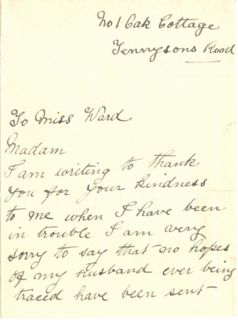 No 1 Oak Cottage
Tennysons Road
To Miss Ward
Madam
I am writing to thank
you for your kindness
to me when I have been
in trouble I am very
sorry to say that no hopes
of my husband ever being
traced have been sent